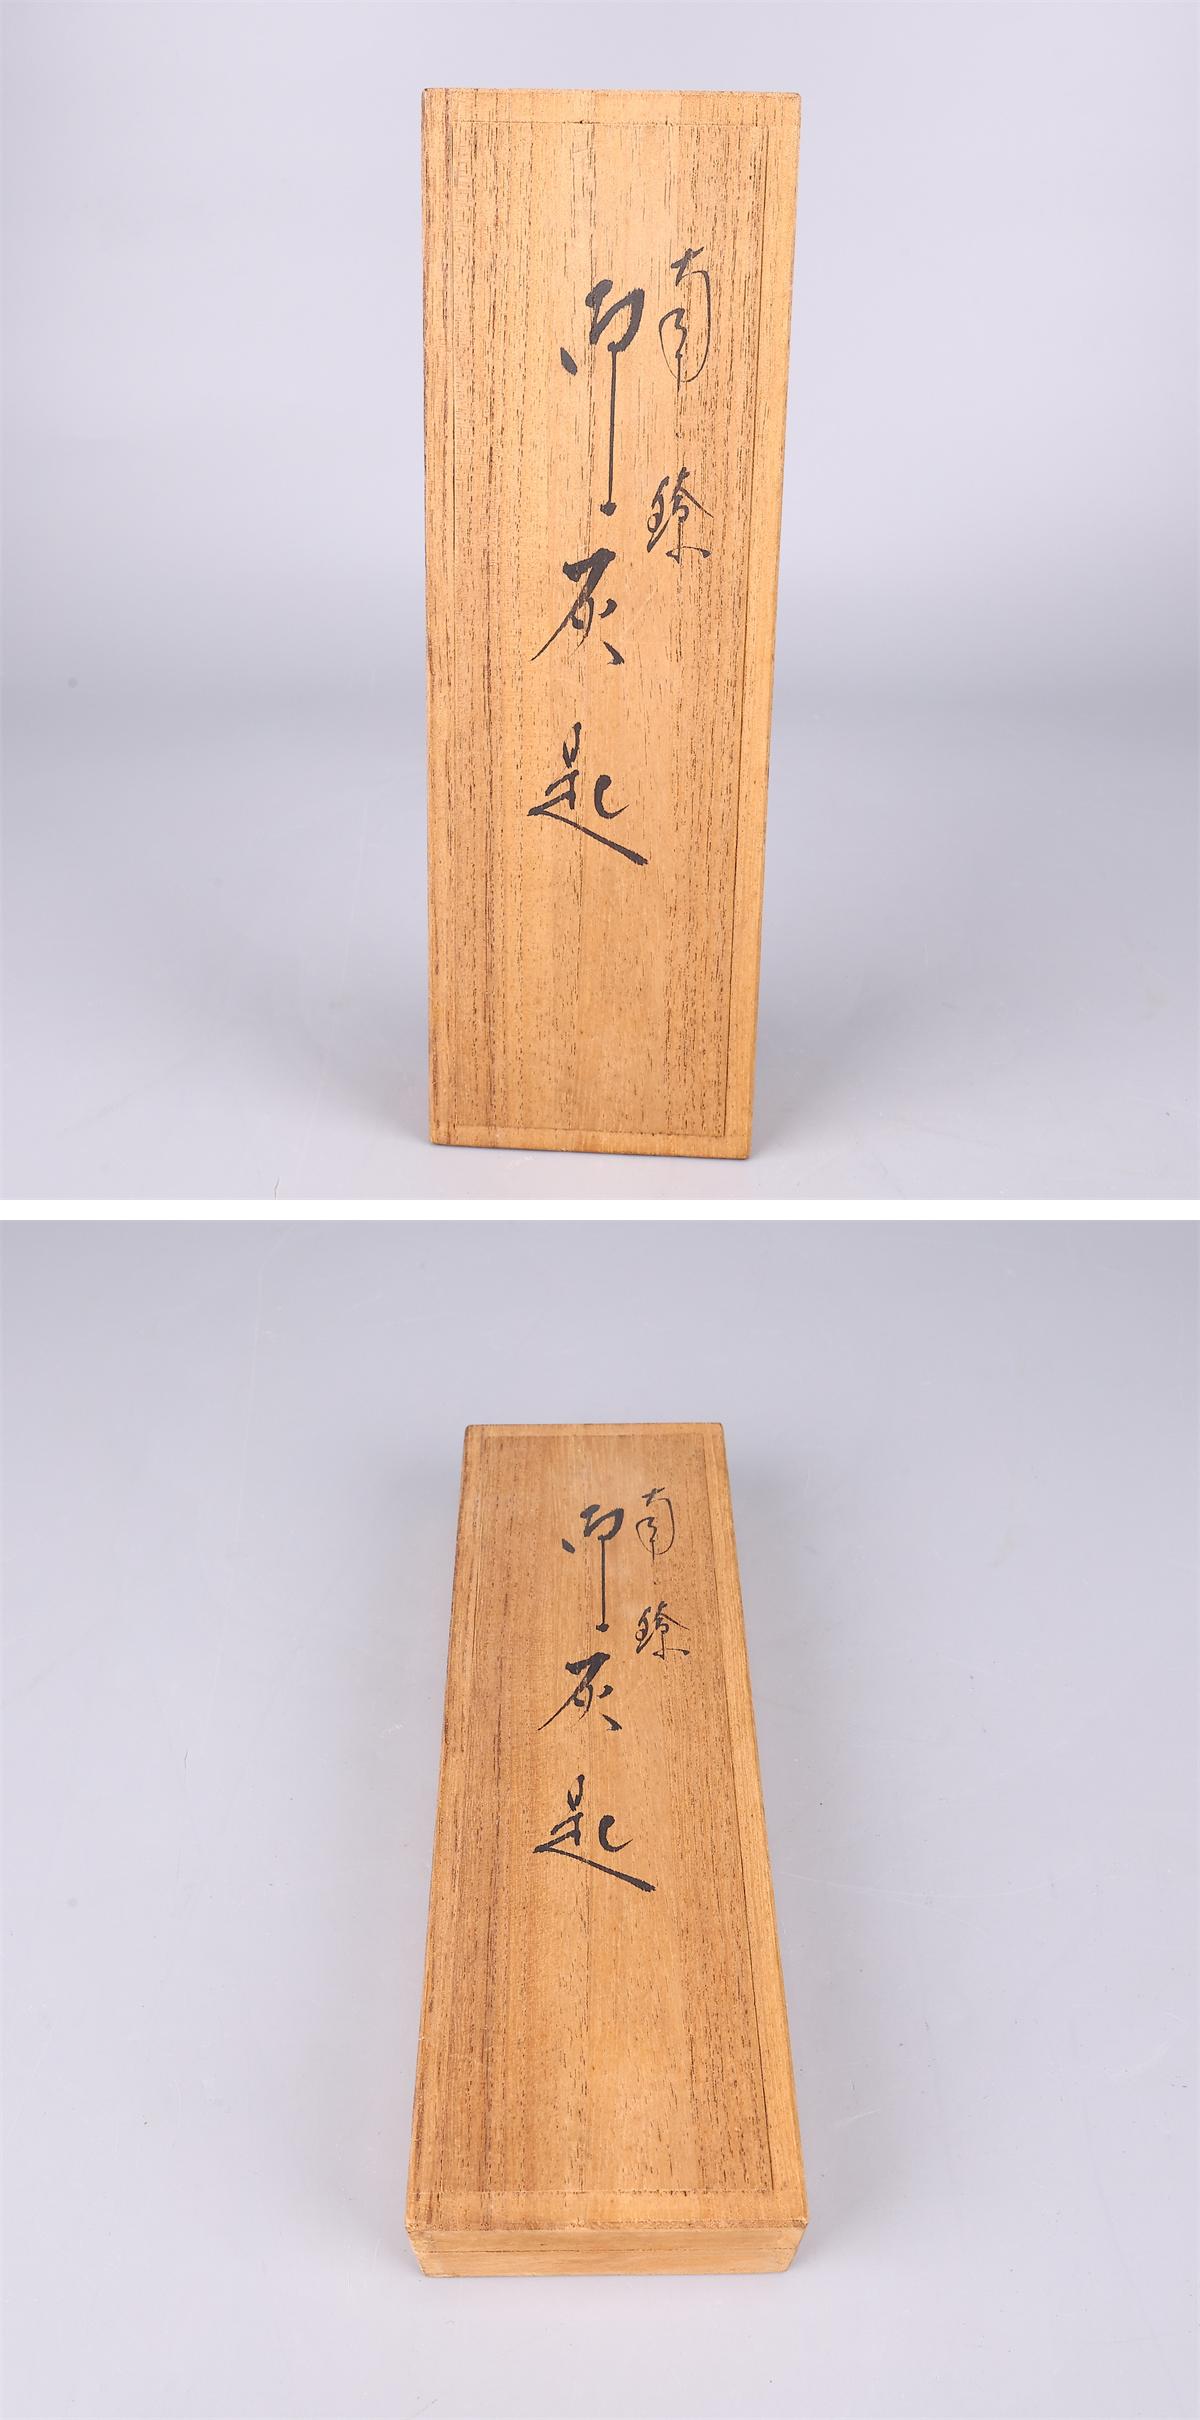 南鐐
御灰起
南鐐
御灰起